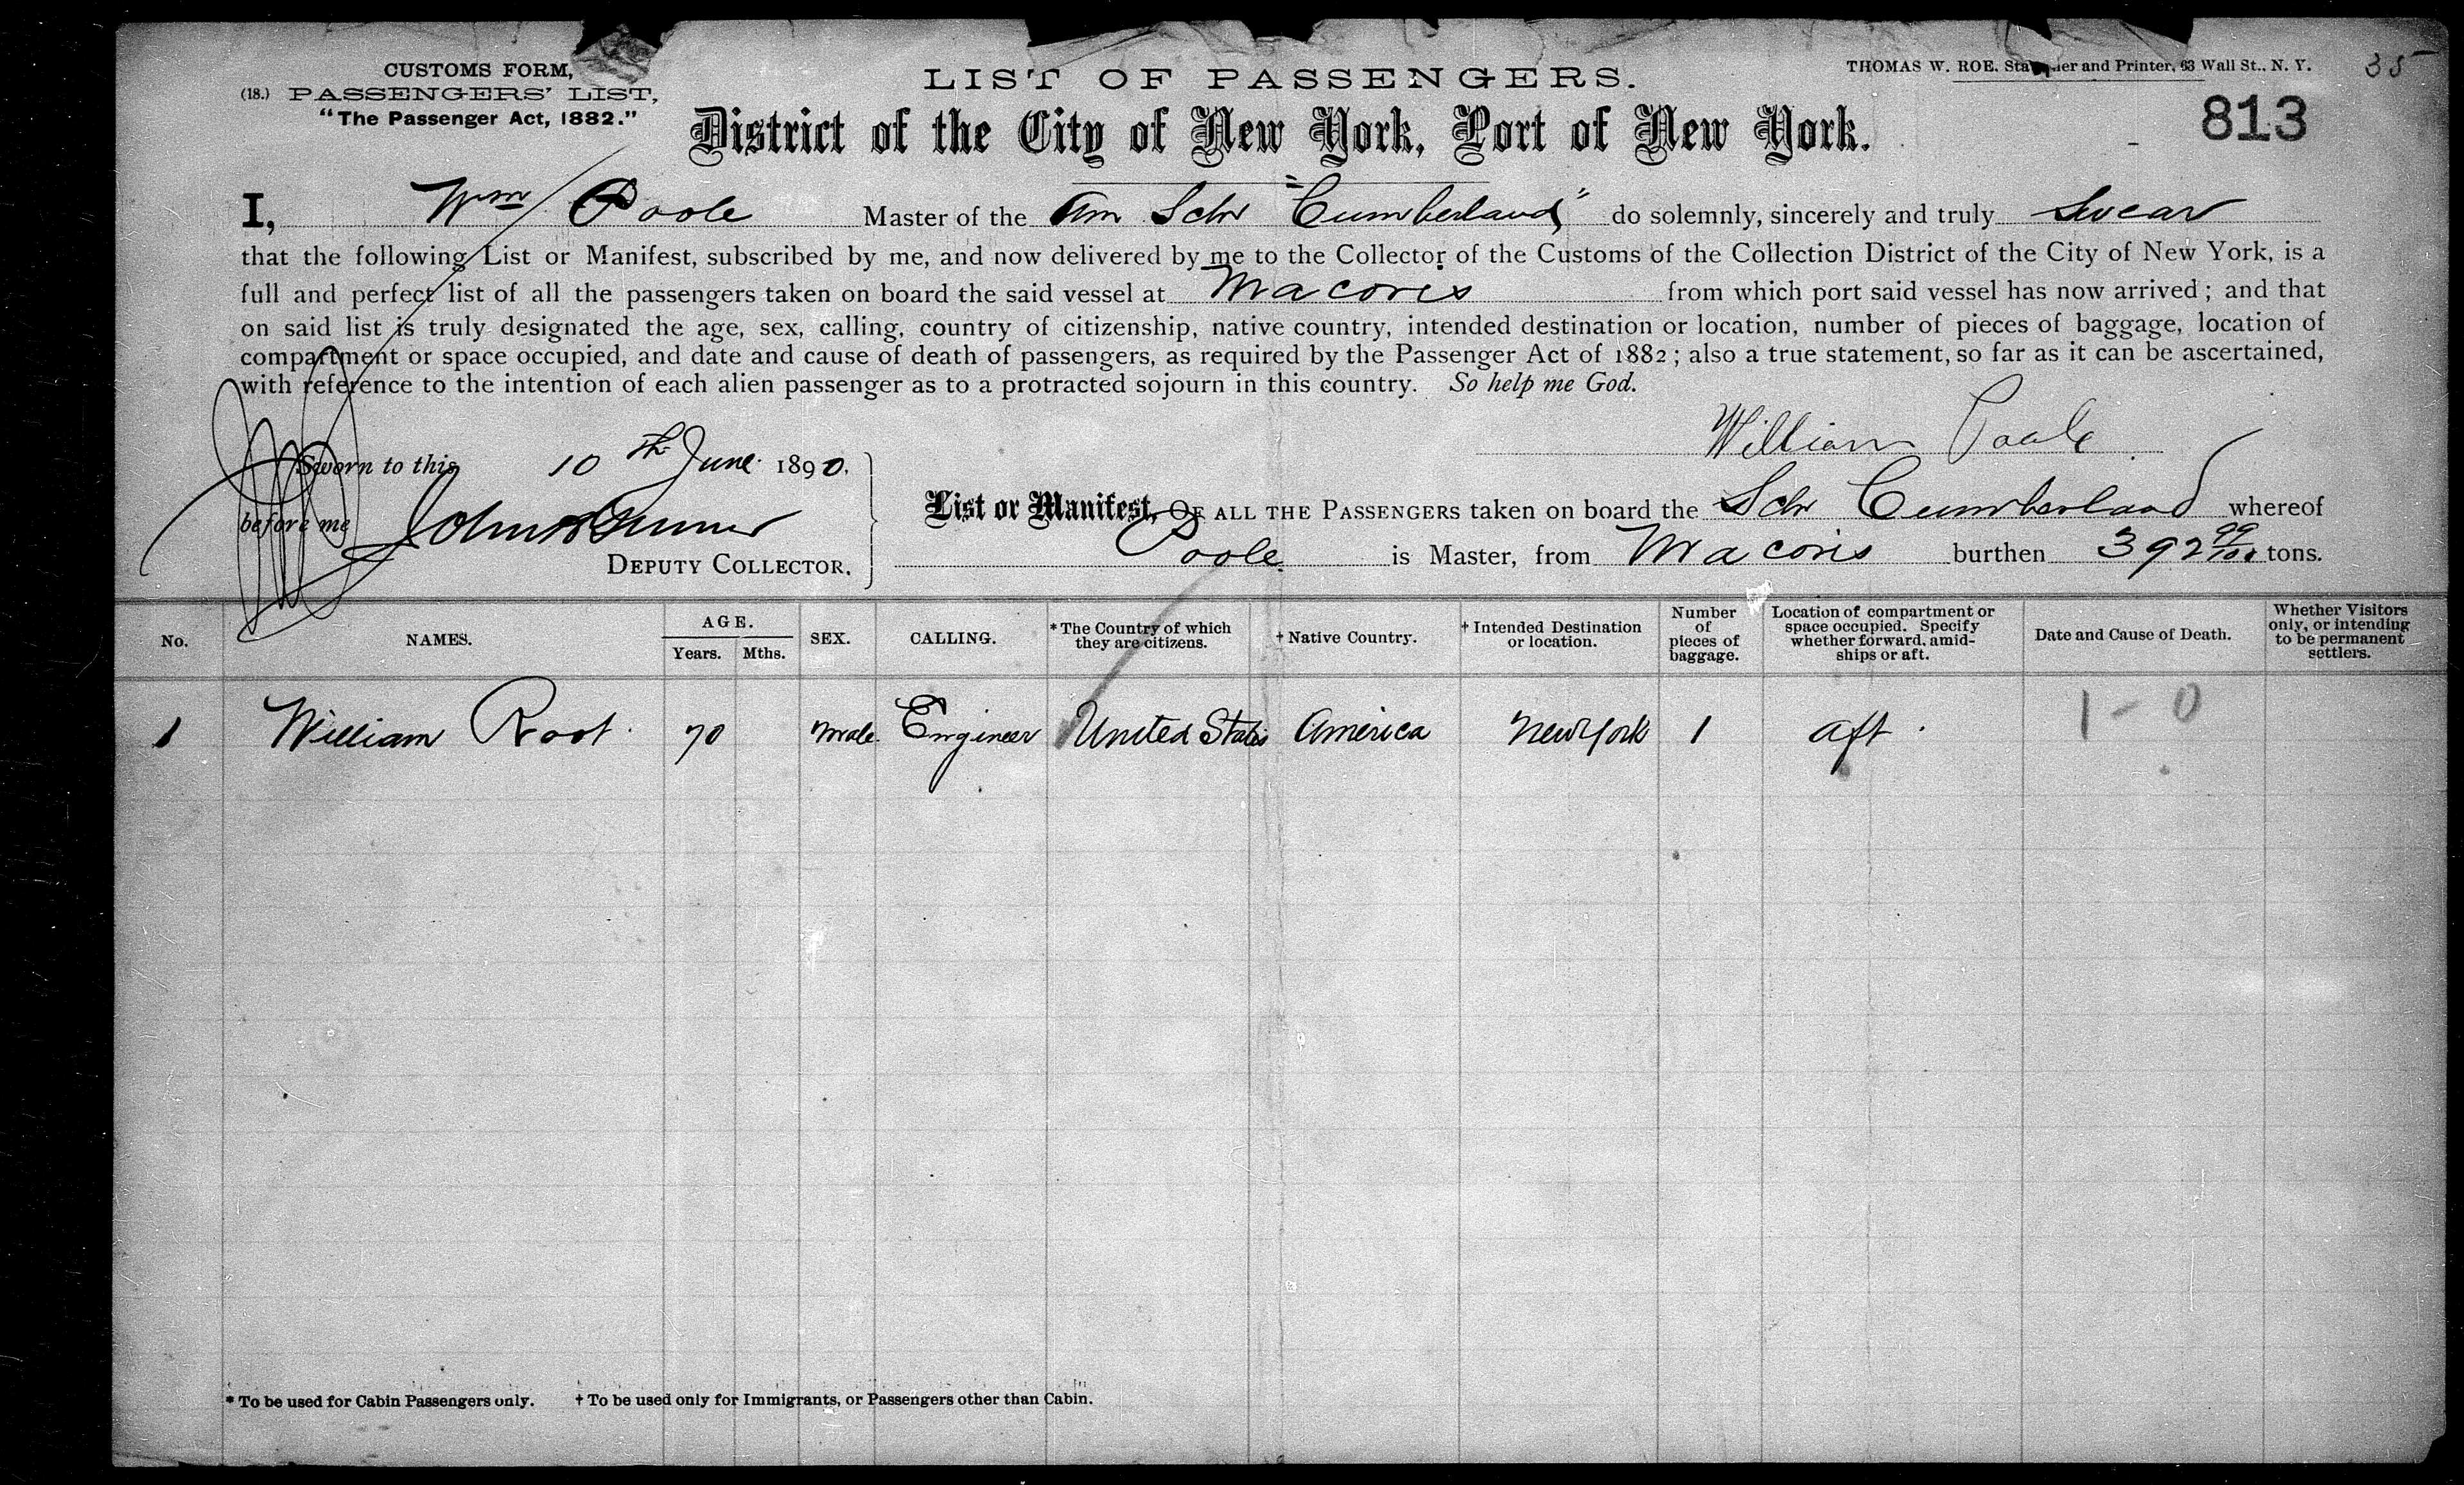 CUSTOMS FORM,
(18.) PASSENGERS' LIST,
"The Passenger Act, 1882."
LIST OF PASSENGERS.
THOMAS W. ROE, and Printer, 63 Wall St., N. Y.
35
813
District of the City of New York, Port of New York.
I, Wm Poole Master of the Am Schr "Cumberland" do solemnly, sincerely and truly Swear
that the following List or Manifest, subscribed by me, and now delivered by me to the Collector of the Customs of the Collection District of the City of New York, is a
full and perfect list of all the passengers taken on board the said vessel at Macoris from which port said vessel has now arrived; and that
on said list is truly designated the age, sex, calling, country of citizenship, native country, intended destination or location, number of pieces of baggage, location of
compartment or space occupied, and date and cause of death of passengers, as required by the Passenger Act of 1882; also a true statement, so far as it can be ascertained,
with reference to the intention of each alien passenger as to a protracted sojourn in this country. So help me God.
William Poole
Sworn to this 10th June 1890.
before me John
DEPUTY COLLECTOR.
List or Manifest, OF ALL THE PASSENGERS taken on board the Schr Cumberland whereof
Poole is Master, from Macoris burthen 392 99/100 tons.
No. NAMES. AGE. Years. Mths. SEX. CALLING. * The Country of which they are citizens. † Native Country. † Intended Destination or location. Number of pieces of baggage. Location of compartment or space occupied. Specify whether forward, amidships or aft. Date and Cause of Death. Whether Visitors only, or intending to be permanent settlers.
1 William Root 70 Male Engineer United States America New York 1 aft 1-0
* To be used for Cabin Passengers only. † To be used only for Immigrants, or Passengers other than Cabin.